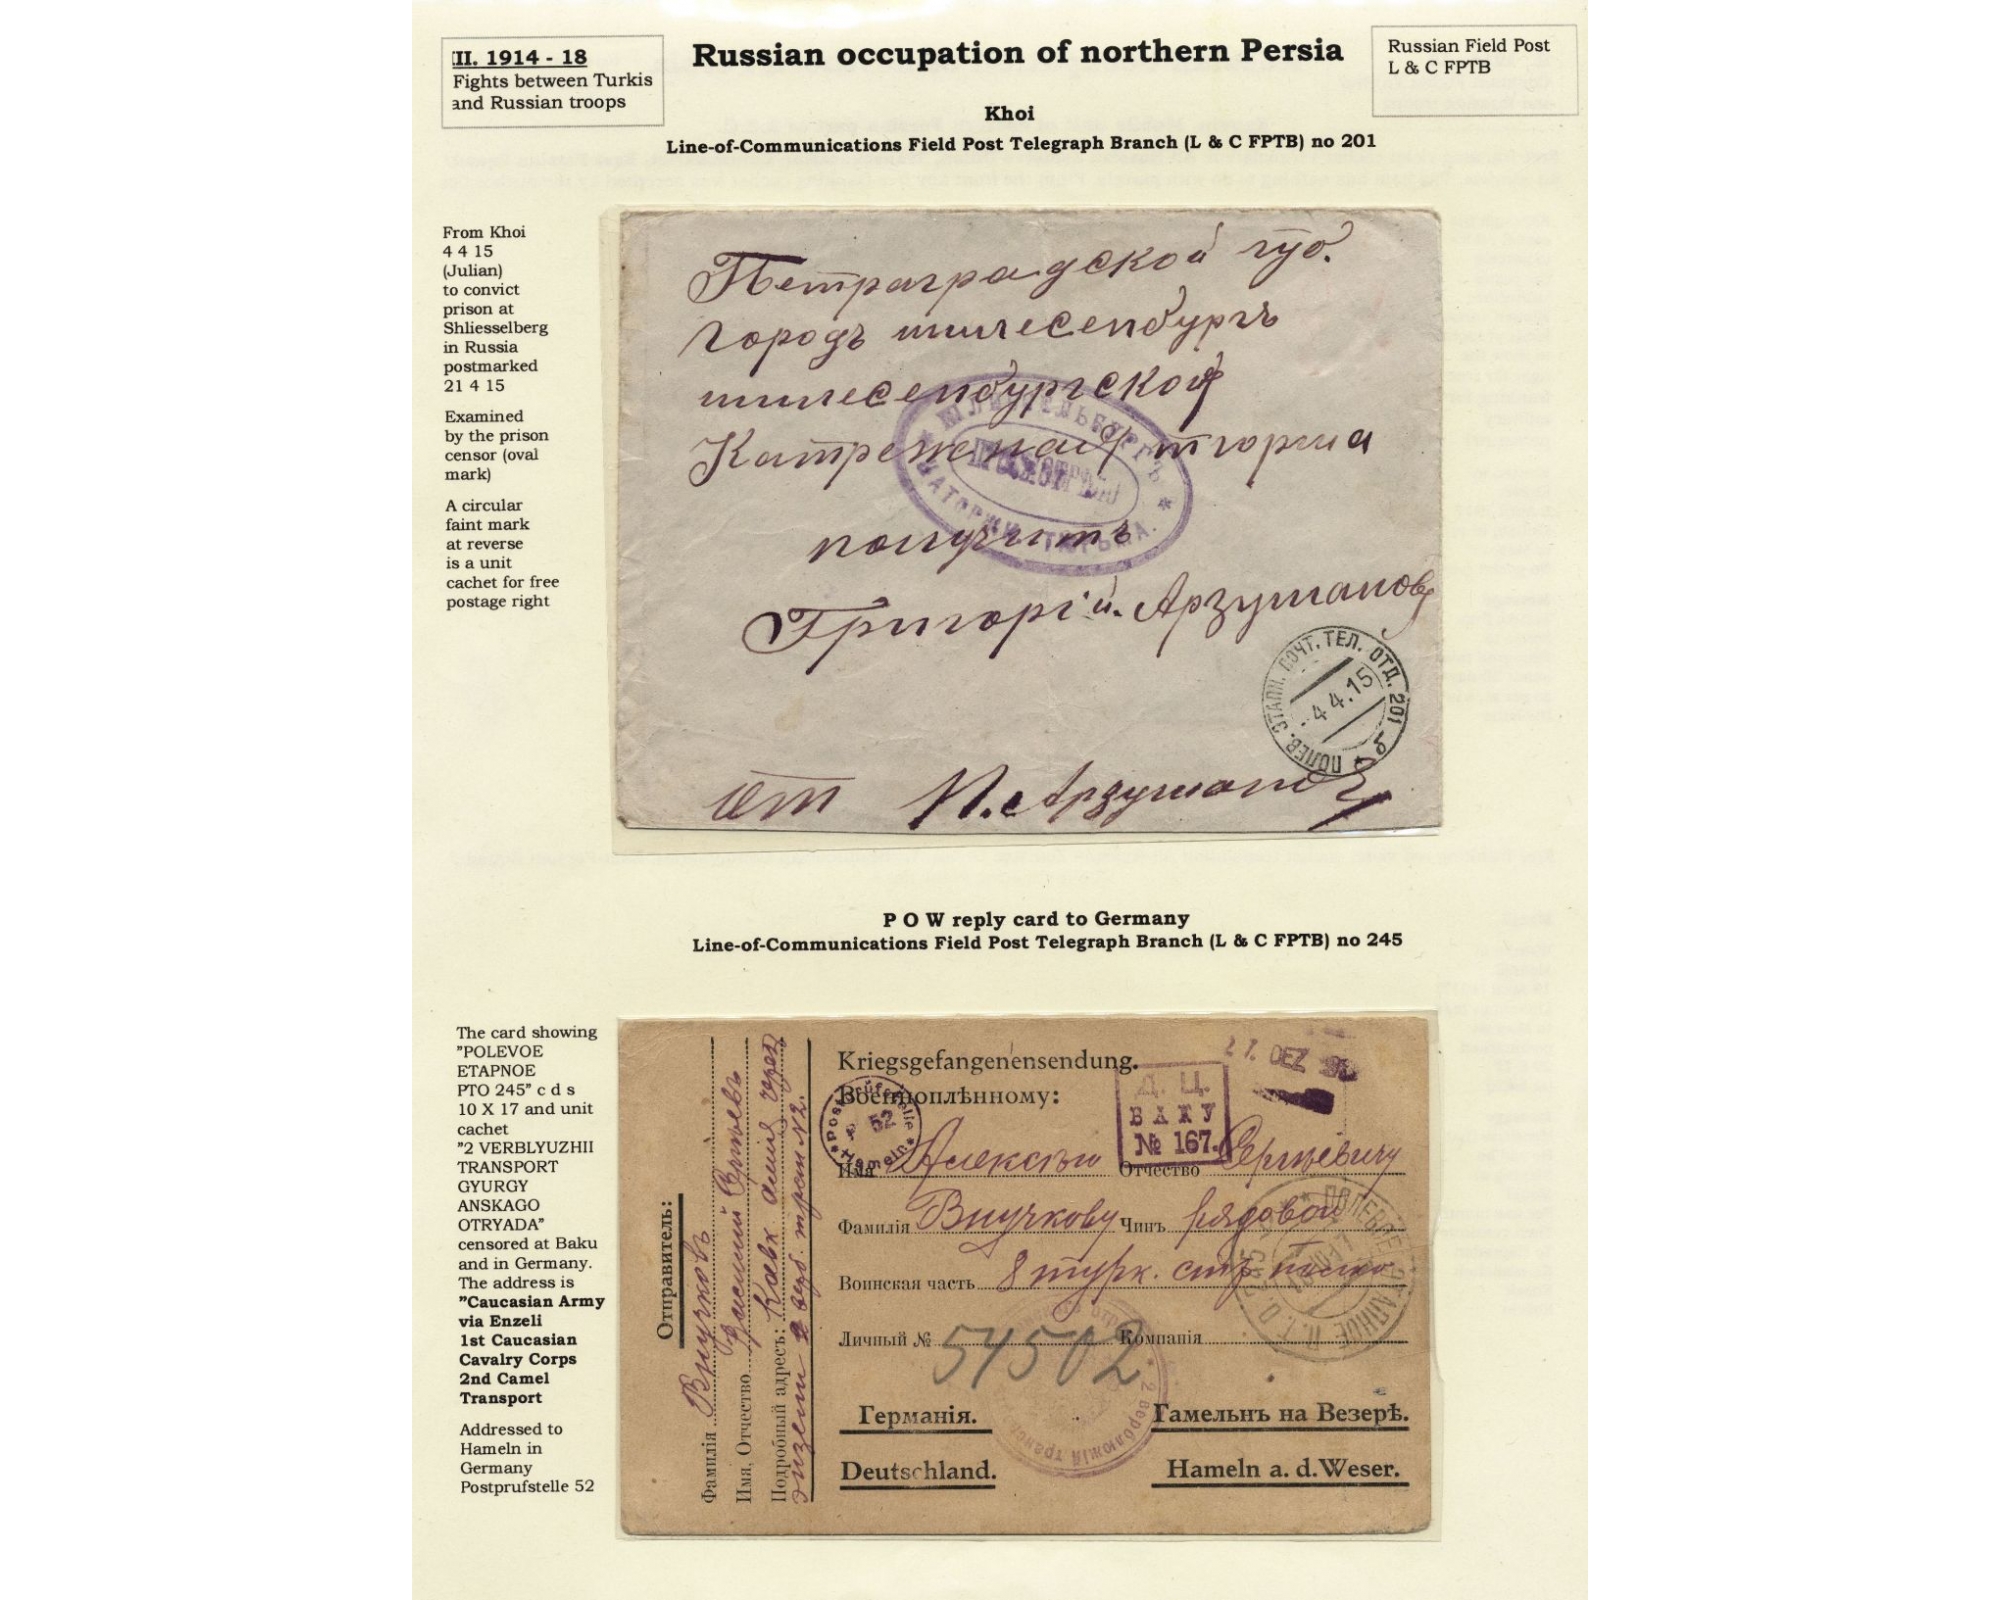 II. 1914 - 18
Fights between Turkis
and Russian troops
Russian occupation of northern Persia
Russian Field Post
L & C FPTB
Khoi
Line-of-Communications Field Post Telegraph Branch (L & C FPTB) no 201
From Khoi
4 4 15
(Julian)
to convict
prison at
Shliesselberg
in Russia
postmarked
21 4 15
Examined
by the prison
censor (oval
mark)
A circular
faint mark
at reverse
is a unit
cachet for free
postage right
Петраградской губ.
городъ шлисенбургъ
шлисенбургской
Катрежнай тюрма
получить
Григорій. Арзуманову
ПОЛЕВ. ЭТАПН. ПОЧТ. ТЕЛ. ОТД. 201
-4.4.15
от И. Арзуманов
P O W reply card to Germany
Line-of-Communications Field Post Telegraph Branch (L & C FPTB) no 245
The card showing
"POLEVOE
ETAPNOE
PTO 245" c d s
10 X 17 and unit
cachet
"2 VERBLYUZHII
TRANSPORT
GYURGY
ANSKAGO
OTRYADA"
censored at Baku
and in Germany.
The address is
"Caucasian Army
via Enzeli
1st Caucasian
Cavalry Corps
2nd Camel
Transport
Addressed to
Hameln in
Germany
Postprufstelle 52
Отправитель:
Фамилія Внучковъ
Имя, Отчество
Подробный адресъ: Кавк армія через
энзели
Kriegsgefangenensendung.
Военноплѣнному:
Postprüfstelle
52
Hameln
Д. Ц.
БАКУ
№ 167.
27. DEZ
Имя Алексѣю Отчество Сергѣевичу
Фамилія Внучкову Чинъ рядовой
Воинская часть 8 турк. стр. полка
Личный № 54502 Компанія
Германія. Гамельнъ на Везерѣ.
Deutschland. Hameln a. d. Weser.